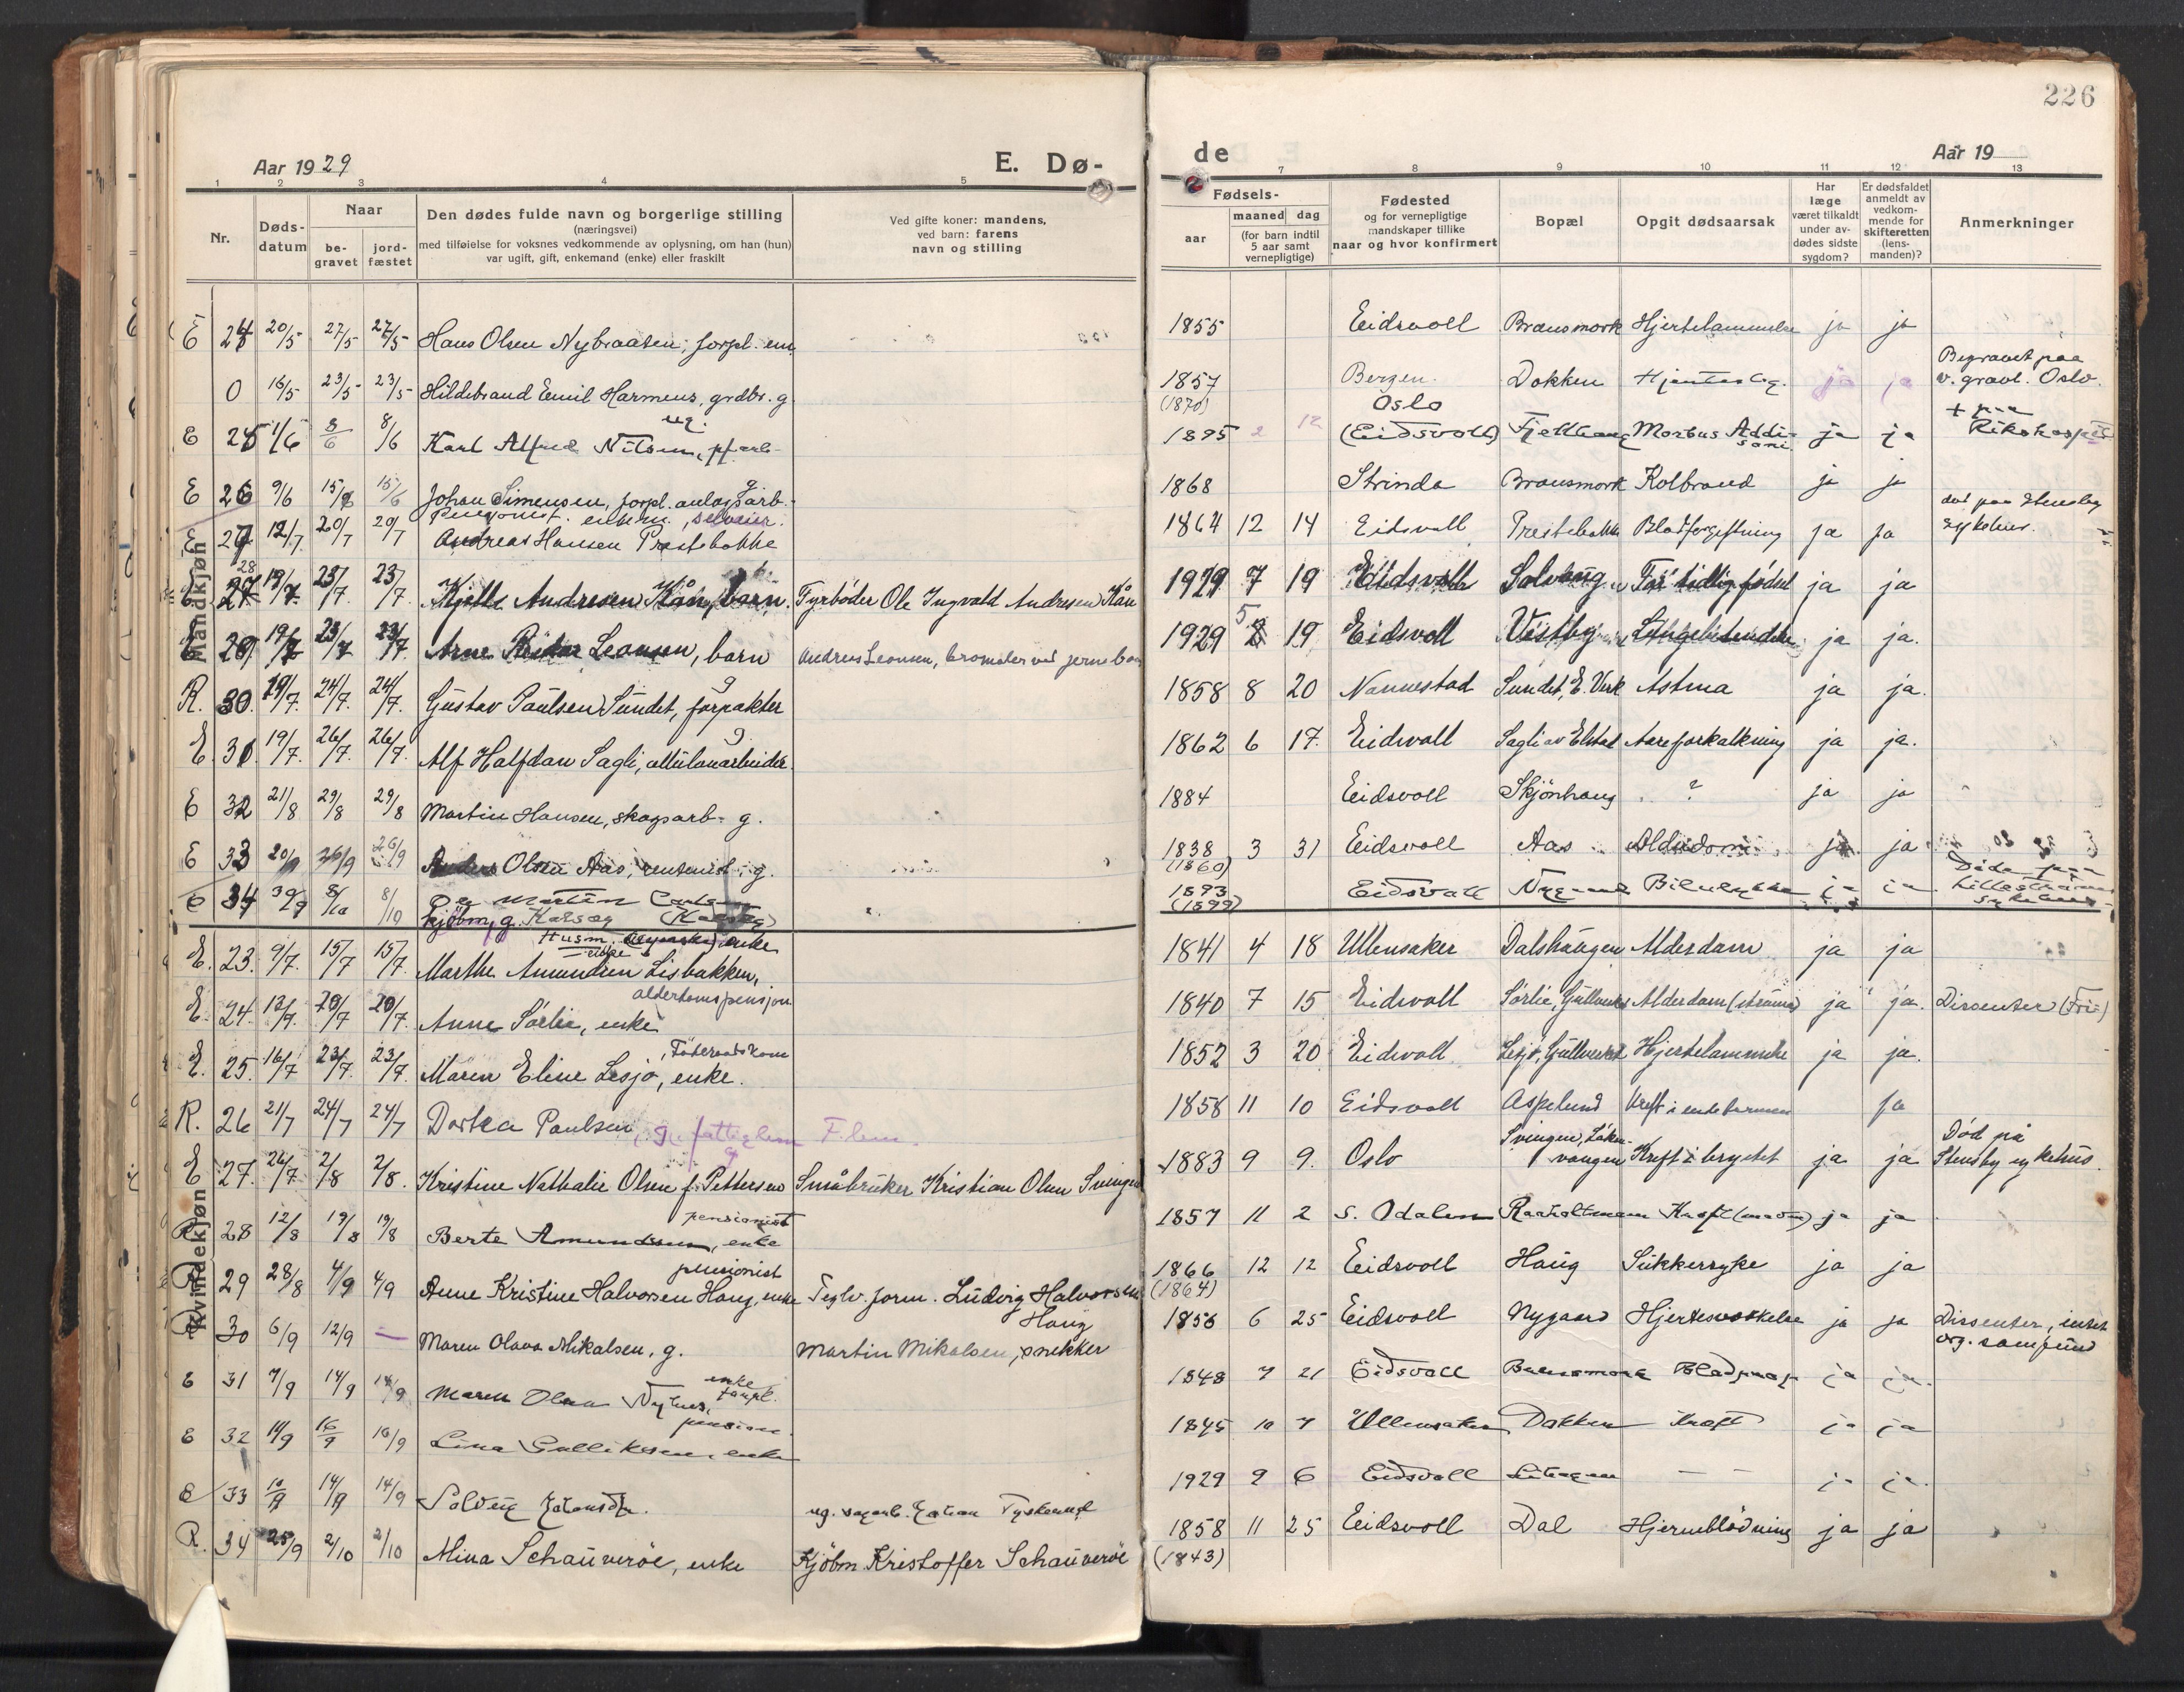 226
Aar 1929
E. Dø-
de
Aar 19
1 2 3 4 5
7 8 9 10 11 12 13
Nr.
Døds-datum
Naar
be-gravet
jord-fæstet
Den dødes fulde navn og borgerlige stilling
(næringsvei)
med tilføielse for voksnes vedkommende av oplysning, om han (hun)
var ugift, gift, enkemand (enke) eller fraskilt
Ved gifte koner: mandens,
ved barn: farens
navn og stilling
Fødsels-
aar
maaned dag
(for barn indtil
5 aar samt
vernepligtige)
Fødested
og for vernepligtige
mandskaper tillike
naar og hvor konfirmert
Bopæl
Opgit dødsaarsak
Har
læge
været tilkaldt
under av-
dødes sidste
sygdom?
Er dødsfaldet
anmeldt av
vedkom-
mende for
skifteretten
(lens-
manden)?
Anmerkninger
Mandkjøn
E 24 20/5 27/5 27/5 Hans Olsen Nybraaten, forpl. em. 1855 Eidsvoll Bransmork Hjertelammelse ja ja
0 16/5 23/5 23/5 Hildebrand Emil Harmens, grdbr. g 1857 (1870) Bergen Dokken ja ja Begravet paa v. gravl. Oslo.
E 25 1/6 8/6 8/6 Karl Alfred Nilsen, ug. 1895 2 12 Oslo (Eidsvoll) Fjellhaug Morbus Addisoni ja ja + paa Rikshospit
E 26 9/6 15/6 15/6 Johan Simensen, forpl. anlagsarb. 1868 Strinda Bransmork Kolbrand ja ja
E 27 12/7 20/7 20/7 Pensionist. enkem., selveier. Andreas Hansen Prestebakke 1864 12 14 Eidsvoll Prestebakke Blodforgiftning ja ja død paa Stensby sykehus.
E 28 19/7 23/7 23/7 Kjell Andresen Kån, barn. Fyrbøder Ole Ingvald Andresen Kån 1929 7 19 Eidsvoll Solvang For tidlig født ja ja
E 29 19/7 23/7 23/7 Arne Reidar Leonsen, barn Andreas Leonsen, bromaler ved jerneban 1929 5 19 Eidsvoll Vestby ja ja.
R. 30. 19/7. 24/7. 24/7. Gustav Paulsen Sundet, forpakter g 1858 8 20 Nannestad Sundet, E. Verk Astma ja ja.
E. 31. 19/7. 26/7. 26/7. Alf Halfdan Sagli, g 1862 6 17. Eidsvoll Sagli av Elstad Aareforkalkning ja ja.
E 32 21/8 29/8 29/8 Martin Hansen, skogsarb. g. 1884 Eidsvoll Skjönhaug ? ja ja
E 33 20/9 26/9 26/9 Anders Olsen Aas, rentenist, g. 1838 (1860) 3 31 Eidsvoll Aas Alderdom ja ja
E 34 30/9 8/10 8/10 Martin Carlsen kjöbm, g. Karsæg 1893 (1899) Eidsvoll Bilulykke ja ja Döde paa Lilleström sykehus
Kvindekjøn
E. 23. 9/7. 15/7 15/7. Marthe Amundsen Lisbakken, Husm. enke 1841 4 18 Ullensaker Dalshaugen Alderdom ja ja
E. 24. 13/7. 20/7 20/7. Anne Sørlie, enke alderdomspensjon 1840 7 15 Eidsvoll Sørlie, Gullverket Alderdom ja ja. Dissenter (Fri)
E. 25. 16/7 23/7. 23/7. Maren Eline Lesjø, enke. Føderaadskone 1852 3 20 Eidsvoll Lesjø, Gullverket Hjertelammelse ja ja.
R. 26 21/7 24/7 24/7 Dortea Paulsen, g. fattiglem Flem. 1858 11 10 Eidsvoll Aspelund Kreft i endetarmen ja
E 27. 26/7. 2/8 2/8. Kristine Nathalie Olsen f. Pettersen g Småbruker Kristian Olsen Svingen 1883 9 9. Oslo Svingen, Låkevangen Kreft i brystet ja ja Död på Stensby sykehus.
R 28 12/8 19/8 19/8 Berte Amundsen, enke pensionist 1857 11 2 S. Odalen Raaholtmoen Kreft ja ja
R 29 28/8 4/9 4/9 Anne Kristine Halvorsen Haug, enke pensionist Teglv. form. Ludvig Halvorsen Haug 1866 (1864) 12 12 Eidsvoll Haug Sukkersyke ja ja
R 30 6/9 12/9 — Maren Olava Mikalsen, g. Martin Mikalsen, snekker 1856 6 25 Eidsvoll Nygaard Hjertesvækkelse ja ja Dissenter, intet org. samfund
E 31 7/9 14/9 14/9 Maren Olsen Nyhus, enke forpl. 1848 7 21 Eidsvoll Bransmork Blodprop ja ja.
E 32 11/9 16/9 16/9 Lina Gulliksen, enke pension. 1845 10 7 Ullensaker Dokken Kreft ja ja
E 33 10/9 14/9 14/9 Solveig Johansdtr. ug. sagarb. Johan Tyskerud 1929 9 6 Eidsvoll — — ja ja.
R. 34 25/9 2/10 2/10 Mina Schauveröe, enke Kjöbm Kristoffer Schauveröe 1858 (1843) 11 25 Eidsvoll Dal Hjerneblödning ja ja